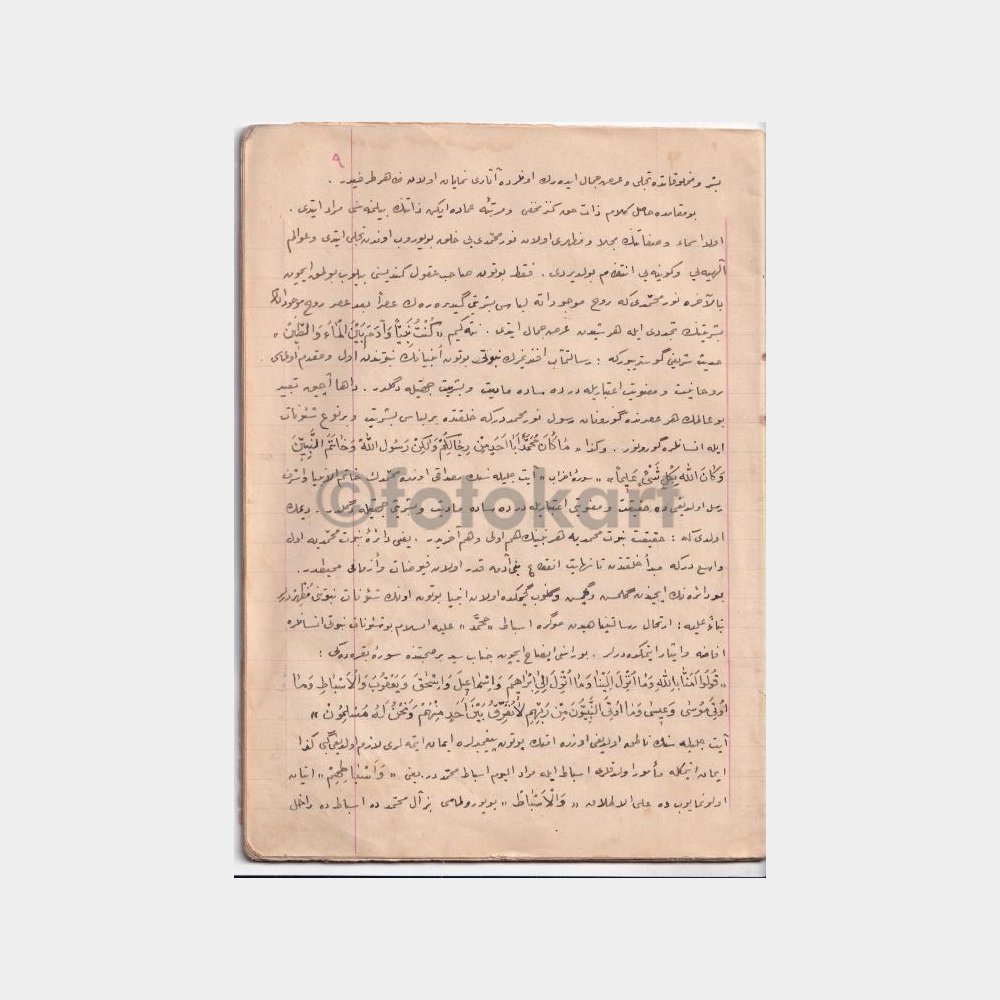 ٩
بشر ومخلوقاتده تجلی وعرض جمال ایده‌رك اونلرده آثاری نمایان اولان هر طرفیدر .
بو مقامده حاصل کلام ذات حق کنز مخفی ومرتبۀ عماده ایکن ذاتنك بیلنمه‌سنی مراد ایتدی .
اولا اسماء وصفاتنك مجلا ومظهری اولان نور محمدی یی خلق بویوروب اوندن تجلی ایتدی وعوالم
الهیه‌یی وکونیه‌یی انتظام بولدیردی . فقط بوتون صاحب عقول کندیسنی بیلوب بولمق ایچون
بالآخره نور محمدی که روح موجوداته لباس بشریتی گیدیره‌رك عصراً بعد عصر روح موجوداتك
بشریتیك تجددی ایله هر شیئدن عرض جمال ایتدی . نته‌کیم « كُنْتُ نَبِيًّا وَآدَمَ بَيْنَ الْمَاءِ وَالطِّينِ »
حدیث شریفی گوستریورکه : رسالتمآب افندیمزك نبوتی بوتون انبیانك نبوتندن اول ومقدم اولماسی
روحانیت ومعنویت اعتباریله در ده ساده مادیت وبشریت جهتیله دگلدر . داها آچیق تعبیر
بو عالمك هر عصرنده گورونان رسول نور محمددرکه خلقتده بر لباس بشریت وبر نوع شئونات
ایله انسانلره گورونور . وکذا « مَا كَانَ مُحَمَّدٌ أَبَا أَحَدٍ مِنْ رِجَالِكُمْ وَلَكِنْ رَسُولَ اللهِ وَخَاتَمَ النَّبِيِّينَ
وَكَانَ اللهُ بِكُلِّ شَيْءٍ عَلِيماً » « سورۀ احزاب » آیت جلیله سنك مصداقی اوزره محمدك خاتم الانبیا واشرف
رسل اولدیغی ده حقیقت ومعنویتی اعتباریله در ده ساده مادیت وبشریتی جهتیله دگلدر . دیمك
اولدی که : حقیقت نبوت محمدیه هر نبینك هم اولی وهم آخریدر . یعنی دائرۀ نبوت محمدیه اول
واسع درکه مبدأ خلقتدن تا نهایت انقطاع بنی آدمه قدر اولان فیوضات وأزمانی محیطدر .
بو دائره‌نك ایچیندن گلمش وگچمش وگلوب گچمکده اولان انبیا بوتون اونك شئونات نبوتنی مظهردرلر
بناءً علیه : ارتحال رسالتپناهیدن صوگره اسباط « محمّد » علیه السلام بو شئونات نبوتی انسانلره
افاضه وایثار ایتمکده‌درلر . بوراسنی ایضاح ایچون جناب سید بر صحبتنده سورۀ بقره‌ده‌کی :
« قُولُوا آمَنَّا بِاللهِ وَمَا أُنْزِلَ إِلَيْنَا وَمَا أُنْزِلَ إِلَى إِبْرَاهِيمَ وَإِسْمَاعِيلَ وَإِسْحَقَ وَيَعْقُوبَ وَالْأَسْبَاطِ وَمَا
أُوتِيَ مُوسَى وَعِيسَى وَمَا أُوتِيَ النَّبِيُّونَ مِنْ رَبِّهِمْ لَا نُفَرِّقُ بَيْنَ أَحَدٍ مِنْهُمْ وَنَحْنُ لَهُ مُسْلِمُونَ »
آیت جلیله سنك ناطق اولدیغی اوزره بوتون پیغمبرلره ایمان ایتمه لری لازم اولدیغی گبی کذا
ایمان ایتمکله مأمور اولدقلری اسباط ایله مراد الیوم اسباط محمددر . یعنی « وَأَسْبَاطِهِمْ » اتیان
اولونمایوب ده علی الاطلاق « وَالْأَسْبَاطْ » بویورولماسی بز آل محمد ده اسباط ده داخل
©fotokart